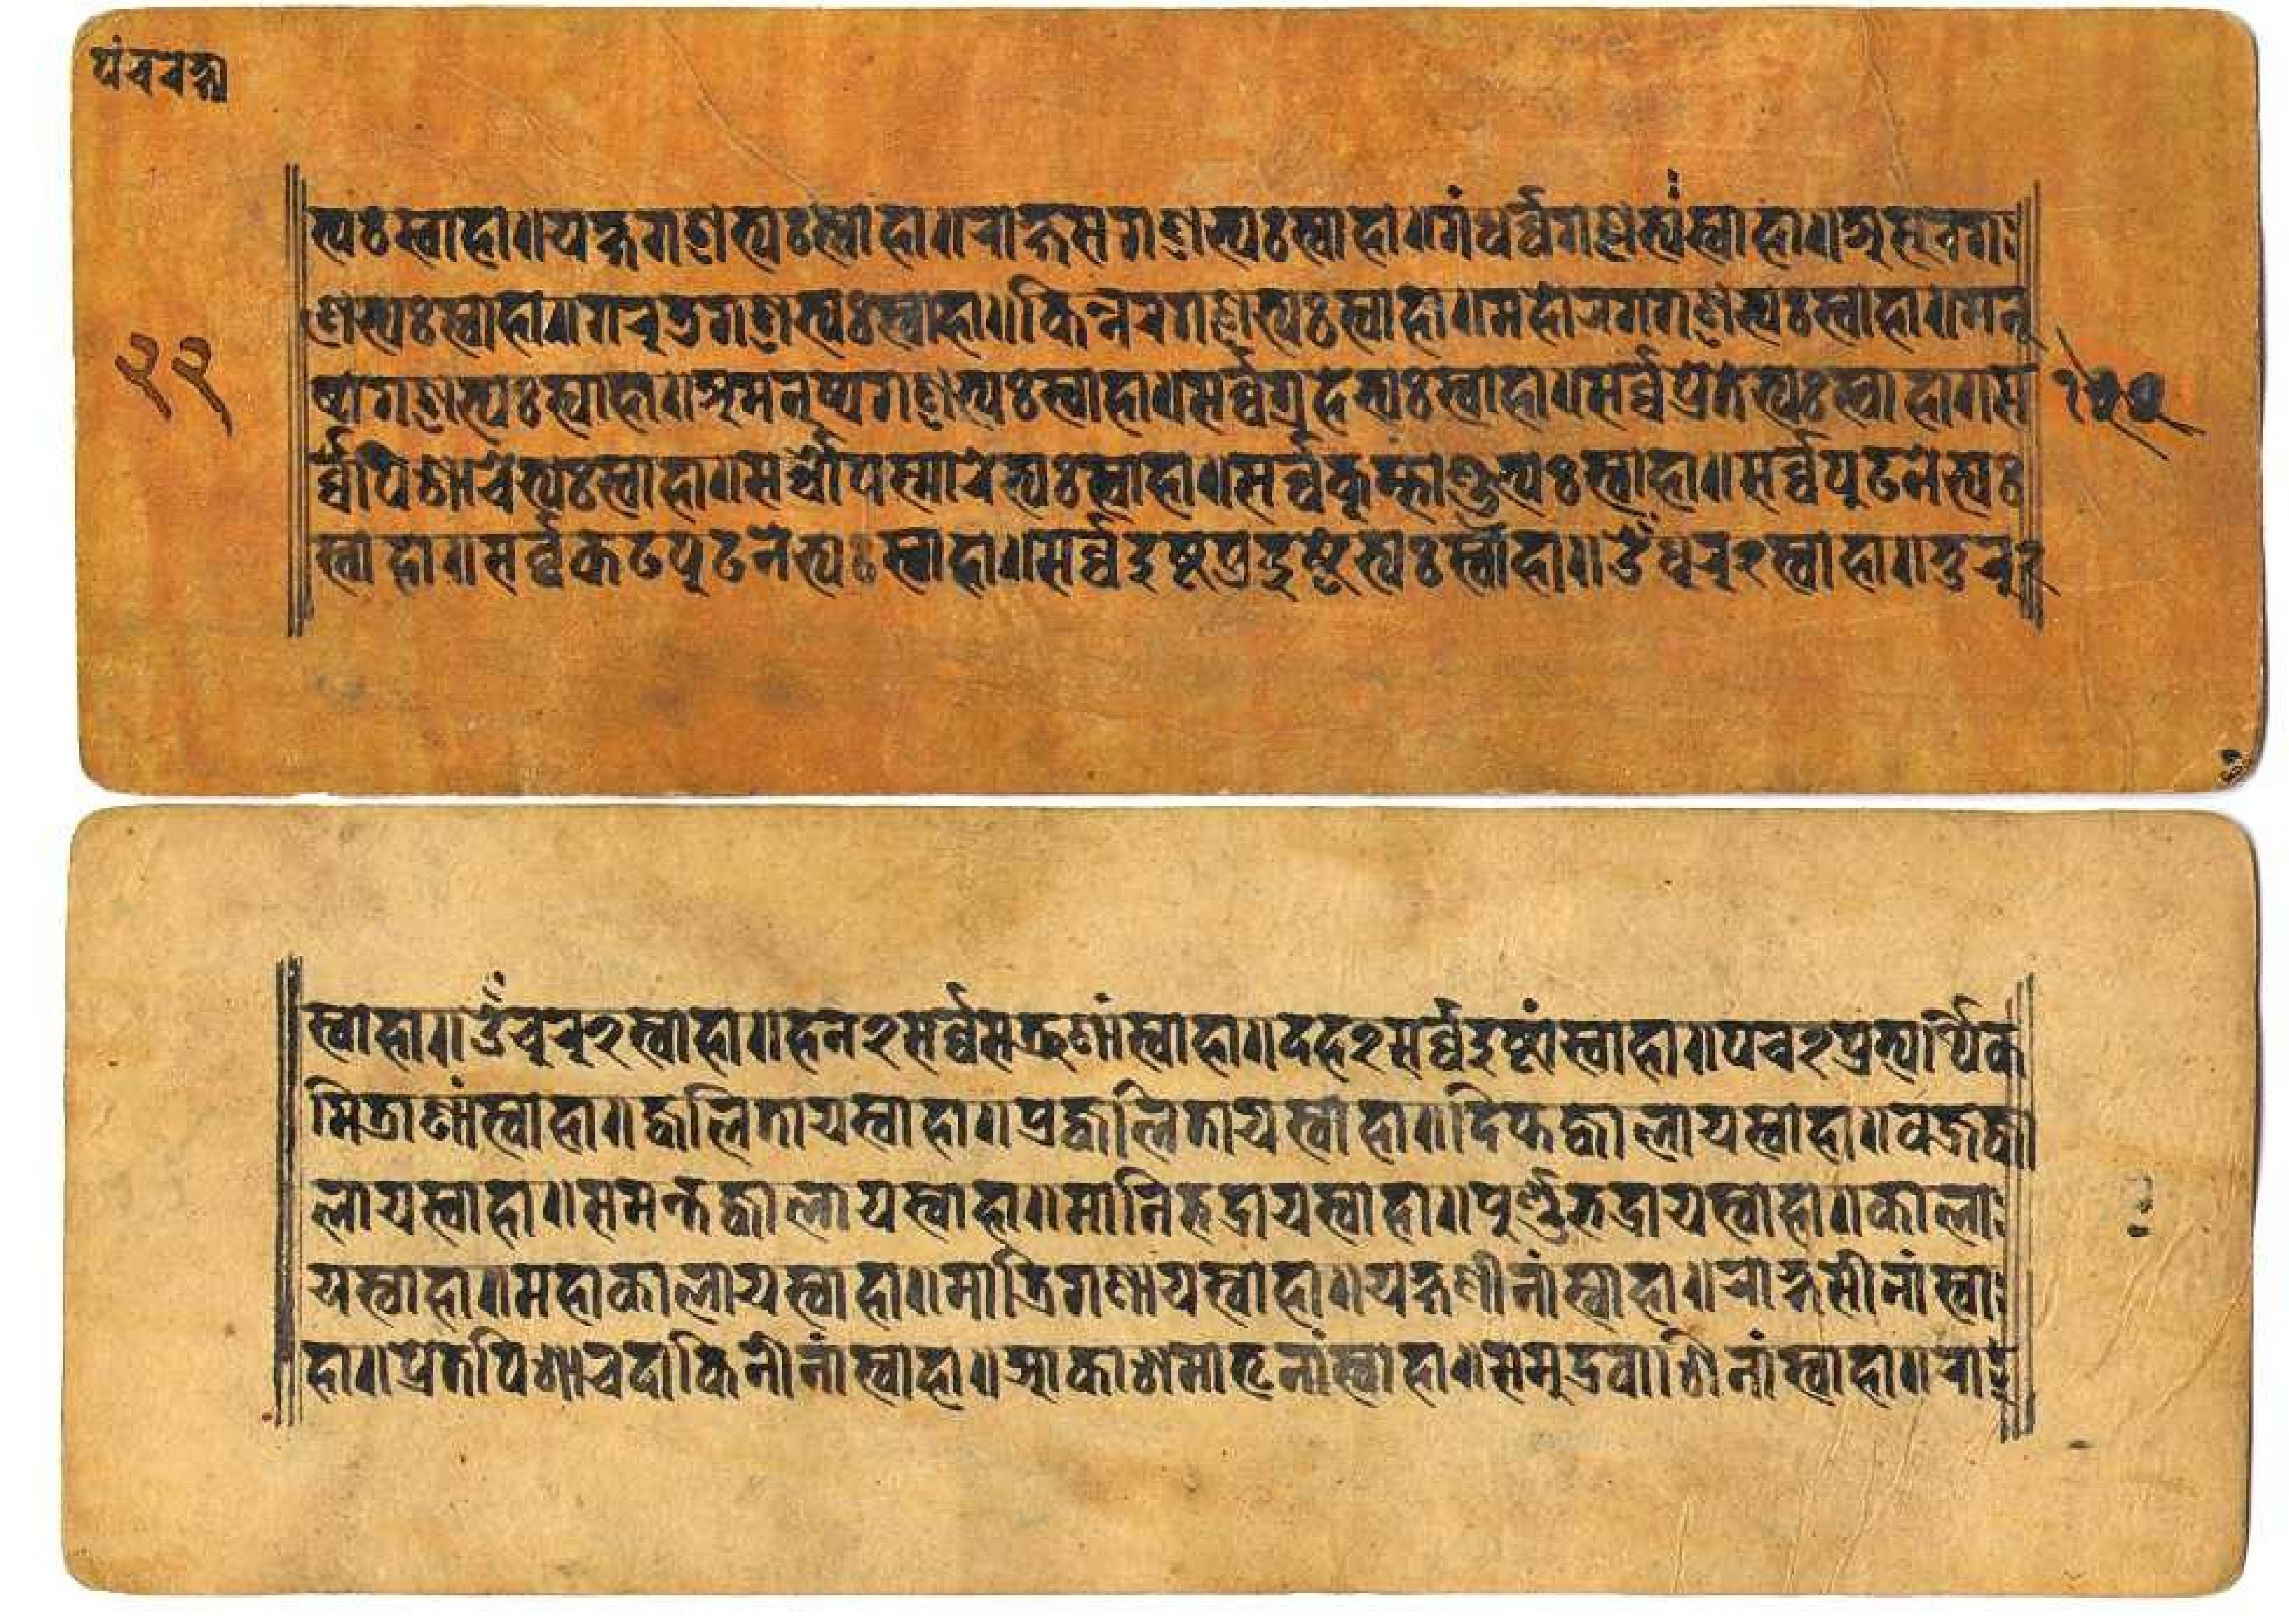 पंचरक्षा
भ्यःस्वाहा॥यक्षगणेभ्यःस्वाहा॥राक्षसगणेभ्यःस्वाहा॥गंधर्व्वगणेभ्यंःस्वाहा॥असूरग
णेभ्यःस्वाहा॥गरूडगणेभ्यःस्वाहा॥किन्नरगणेभ्यःस्वाहा॥महोरगगणेभ्यःस्वाहा॥मनू
२२
ष्यगणेभ्यःस्वाहा॥अमनूष्यगणेभ्यःस्वाहा॥सर्व्वग्रहेभ्यःस्वाहा॥सर्व्वप्रेतेभ्यःस्वाहा॥स
र्व्वपिशाचेभ्यःस्वाहा॥सर्व्वापस्मारेभ्यःस्वाहा॥सर्व्वकूम्भाण्डेभ्यःस्वाहा॥सर्व्वपूटनेभ्यः
स्वाहा॥सर्व्वकटपूटनेभ्यःस्वाहा॥सर्व्वदुष्टप्रदुष्टेभ्यःस्वाहा॥ॐधूरू२स्वाहा॥तुरू२
स्वाहा॥ॐचूरू२स्वाहा॥हन२सर्व्वसत्रूणांस्वाहा॥दह२सर्व्वदुष्टांस्वाहा॥पच२प्रत्यर्थिक
मित्राणांस्वाहा॥ज्वलितायस्वाहा॥प्रज्वलितायस्वाहा॥दिप्तज्वालायस्वाहा॥वज्रज्वा
लायस्वाहा॥समन्तज्वालायस्वाहा॥मानिभद्रायस्वाहा॥पूर्ण्णभद्रायस्वाहा॥काला
यस्वाहा॥महाकालायस्वाहा॥मात्रिगणायस्वाहा॥यक्षणीनांस्वाहा॥राक्षसीनांस्वा
हा॥प्रेतपिशाचदाकिनीनांस्वाहा॥आकाशमातृनांस्वाहा॥समूद्रवाशिनांस्वाहा॥रा